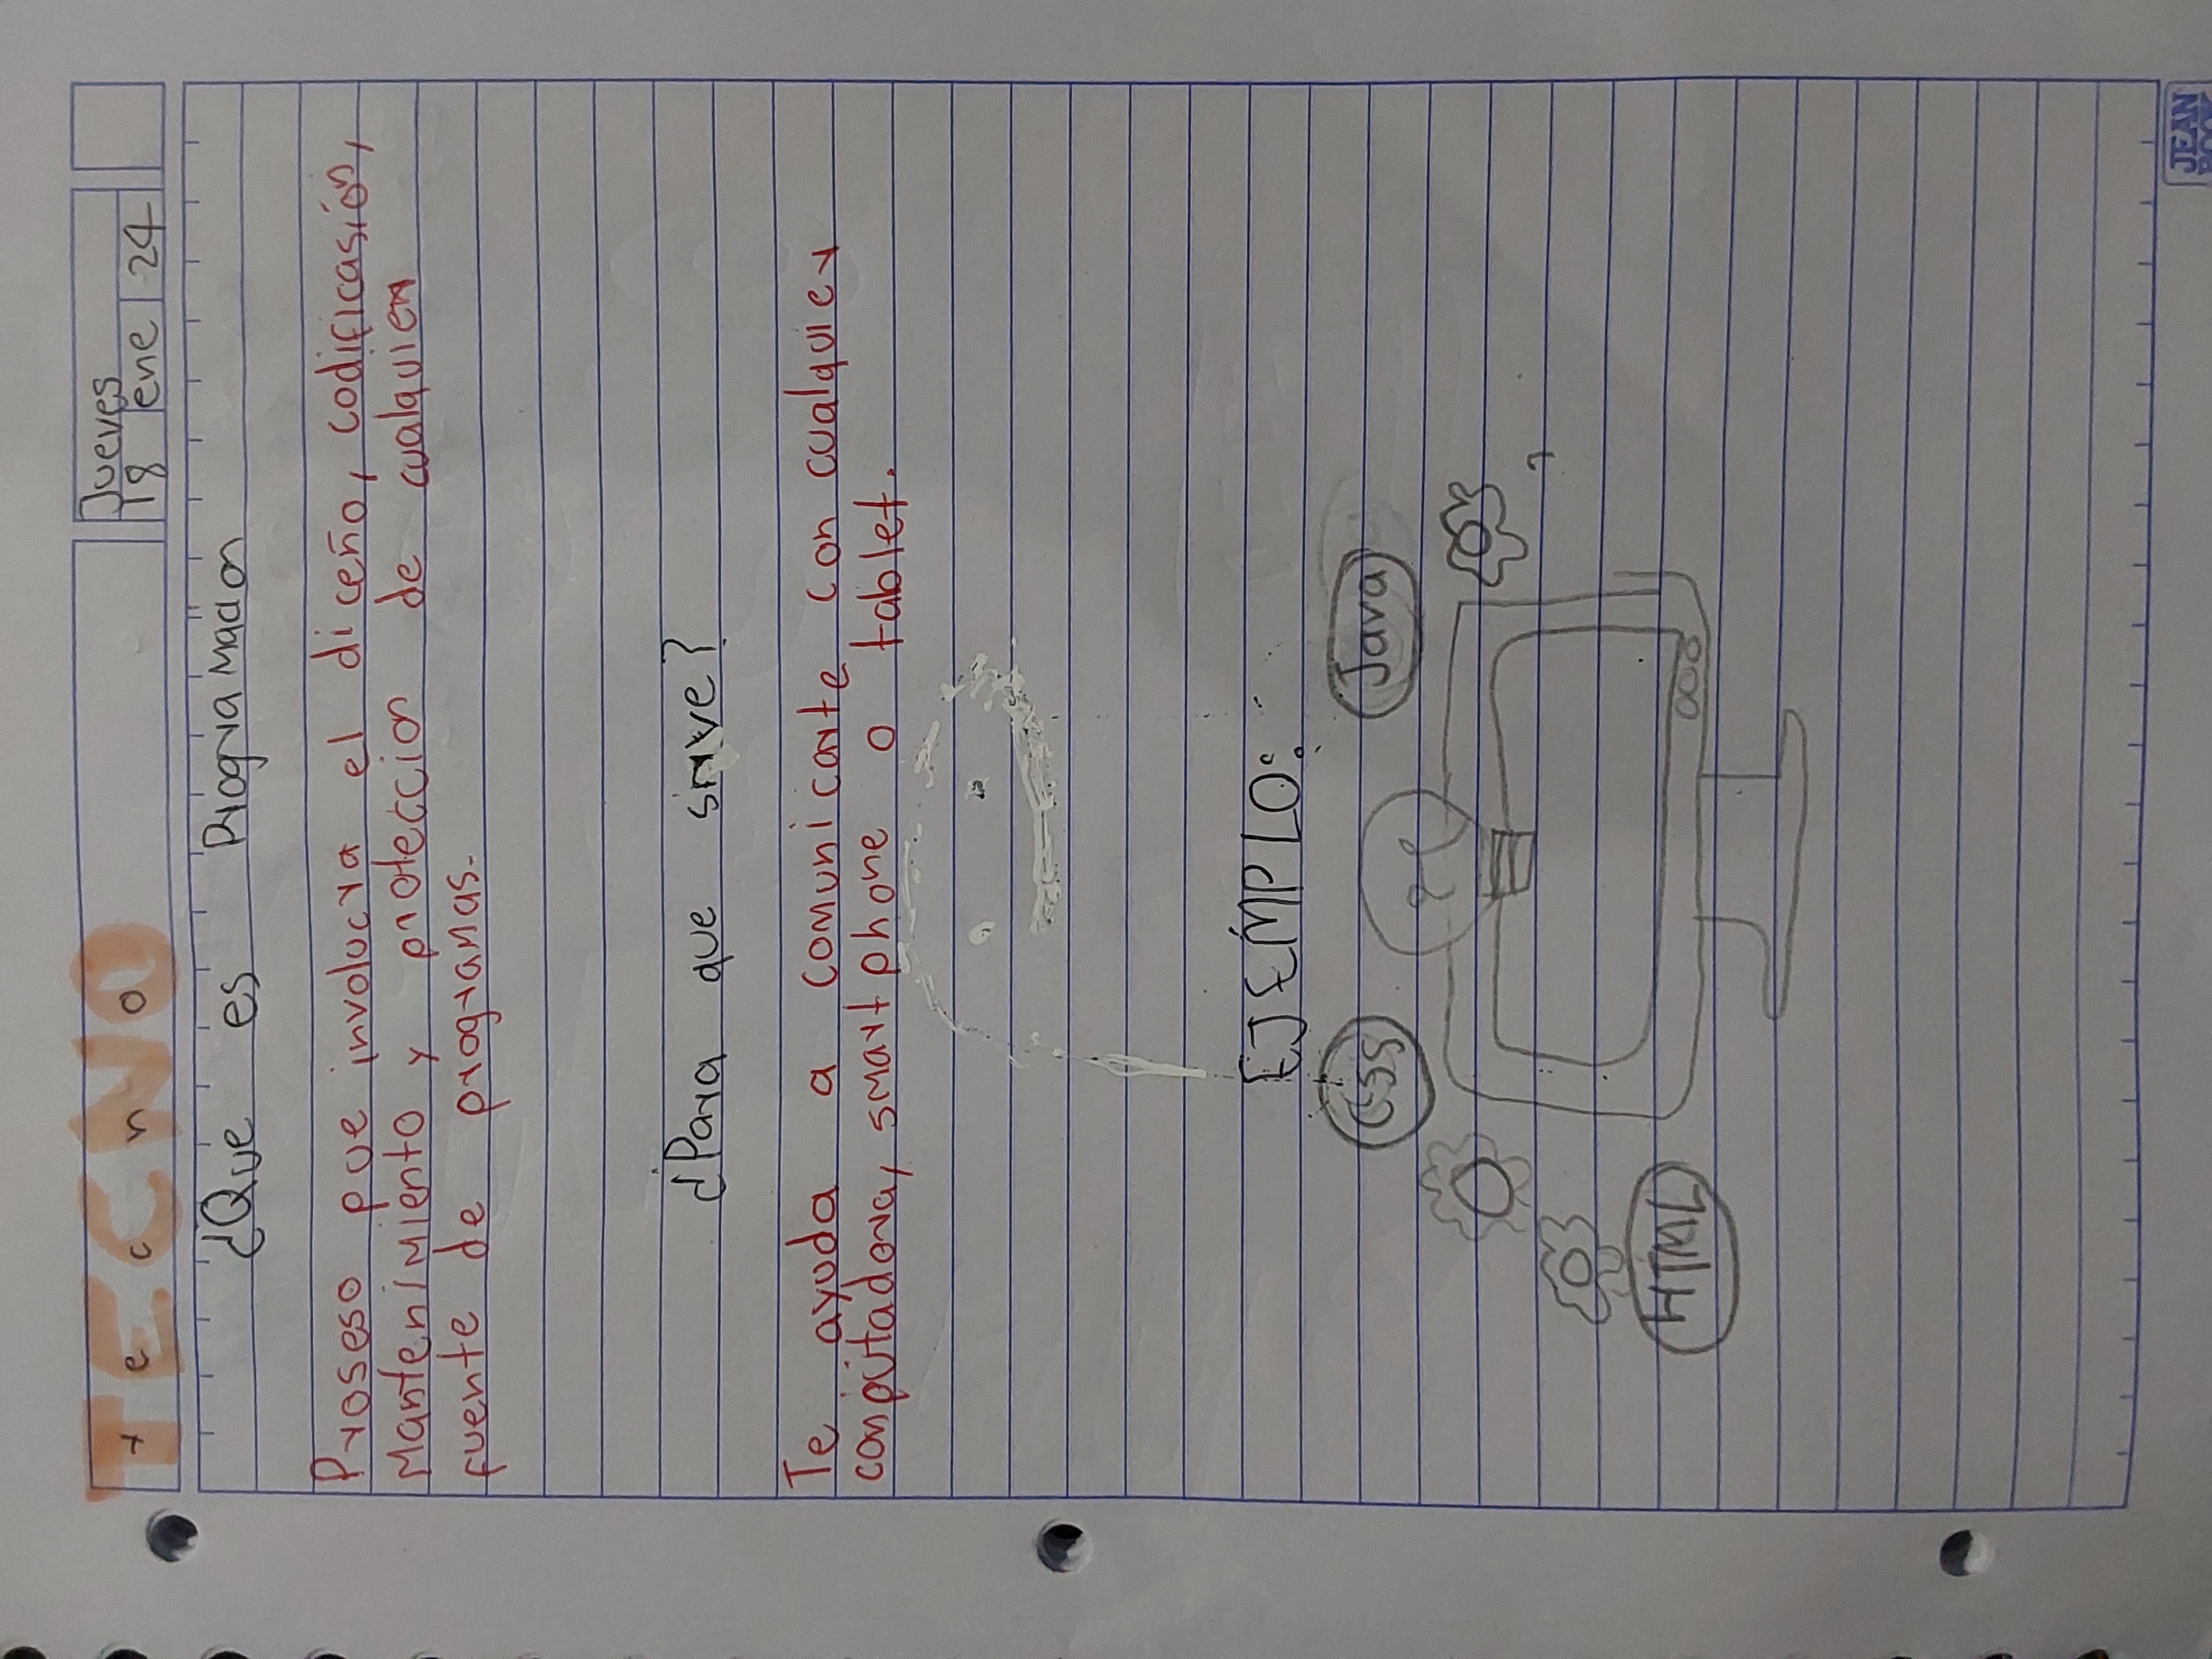 TECNO
Tecno
Jueves
18 ene 24
¿Qué es Programador
Proseso que involucra el diceño, codificasión,
Mantenimiento y protección de cualquier
fuente de programas.
¿Para que srive?
Te ayuda a comunicarte con cualquier
computadora, smartphone o tablet.
EJEMPLO:
CSS
Java
HTML
JEAN
BOOK